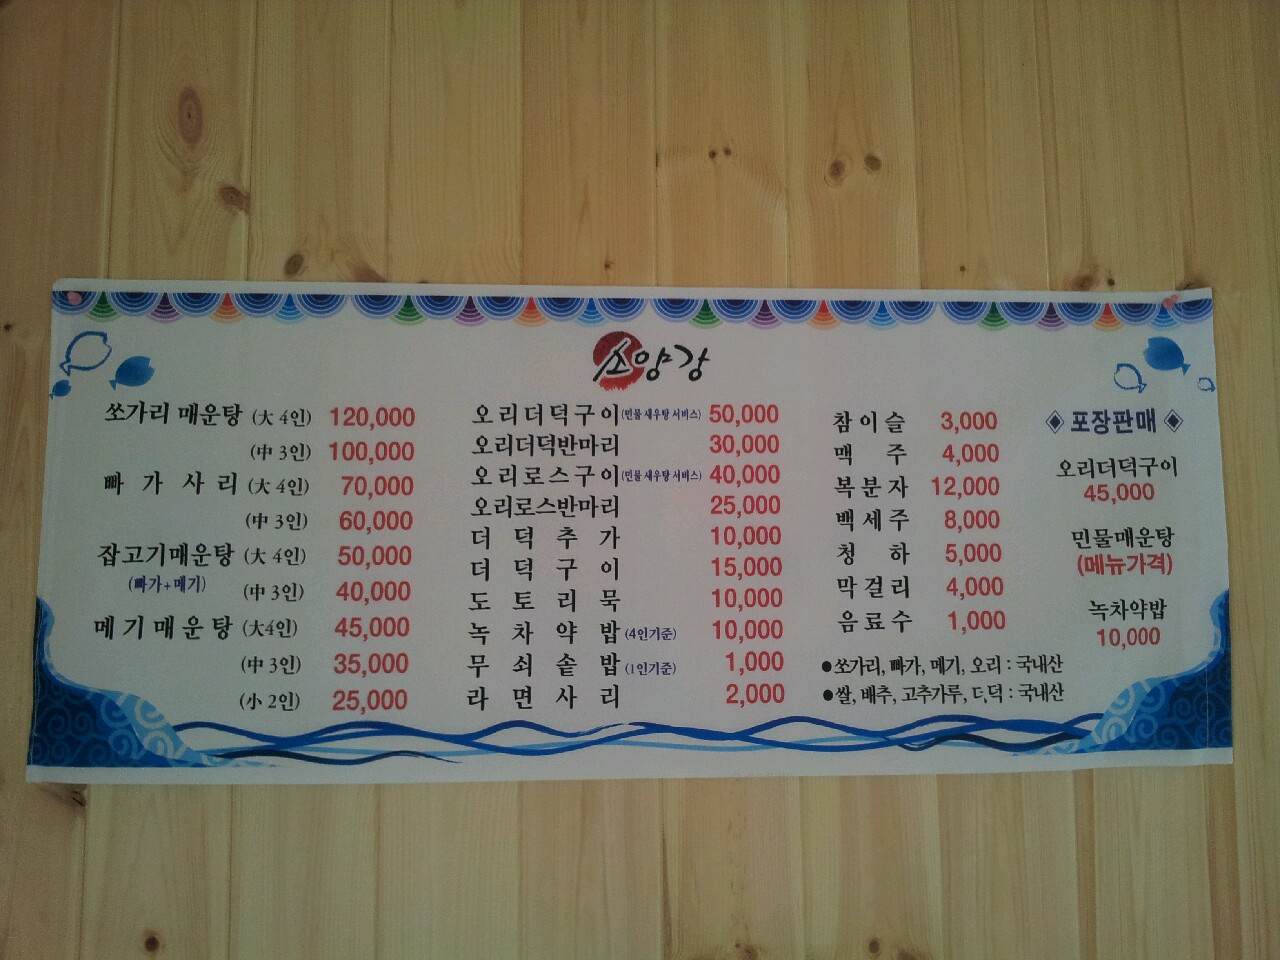 소양강
쏘가리 매운탕 (大 4인) 120,000
(中 3인) 100,000
빠가사리 (大 4인) 70,000
(中 3인) 60,000
잡고기매운탕 (大 4인) 50,000
(빠가+메기) (中 3인) 40,000
메기매운탕 (大4인) 45,000
(中 3인) 35,000
(小 2인) 25,000
오리더덕구이 (민물 새우탕 서비스) 50,000
오리더덕반마리 30,000
오리로스구이 (민물 새우탕 서비스) 40,000
오리로스반마리 25,000
더덕추가 10,000
더덕구이 15,000
도토리묵 10,000
녹차약밥 (4인기준) 10,000
무쇠솥밥 (1인기준) 1,000
라면사리 2,000
참이슬 3,000
맥주 4,000
복분자 12,000
백세주 8,000
청하 5,000
막걸리 4,000
음료수 1,000
●쏘가리, 빠가, 메기, 오리 : 국내산
●쌀, 배추, 고추가루, 더덕 : 국내산
◈ 포장판매 ◈
오리더덕구이
45,000
민물매운탕
(메뉴가격)
녹차약밥
10,000